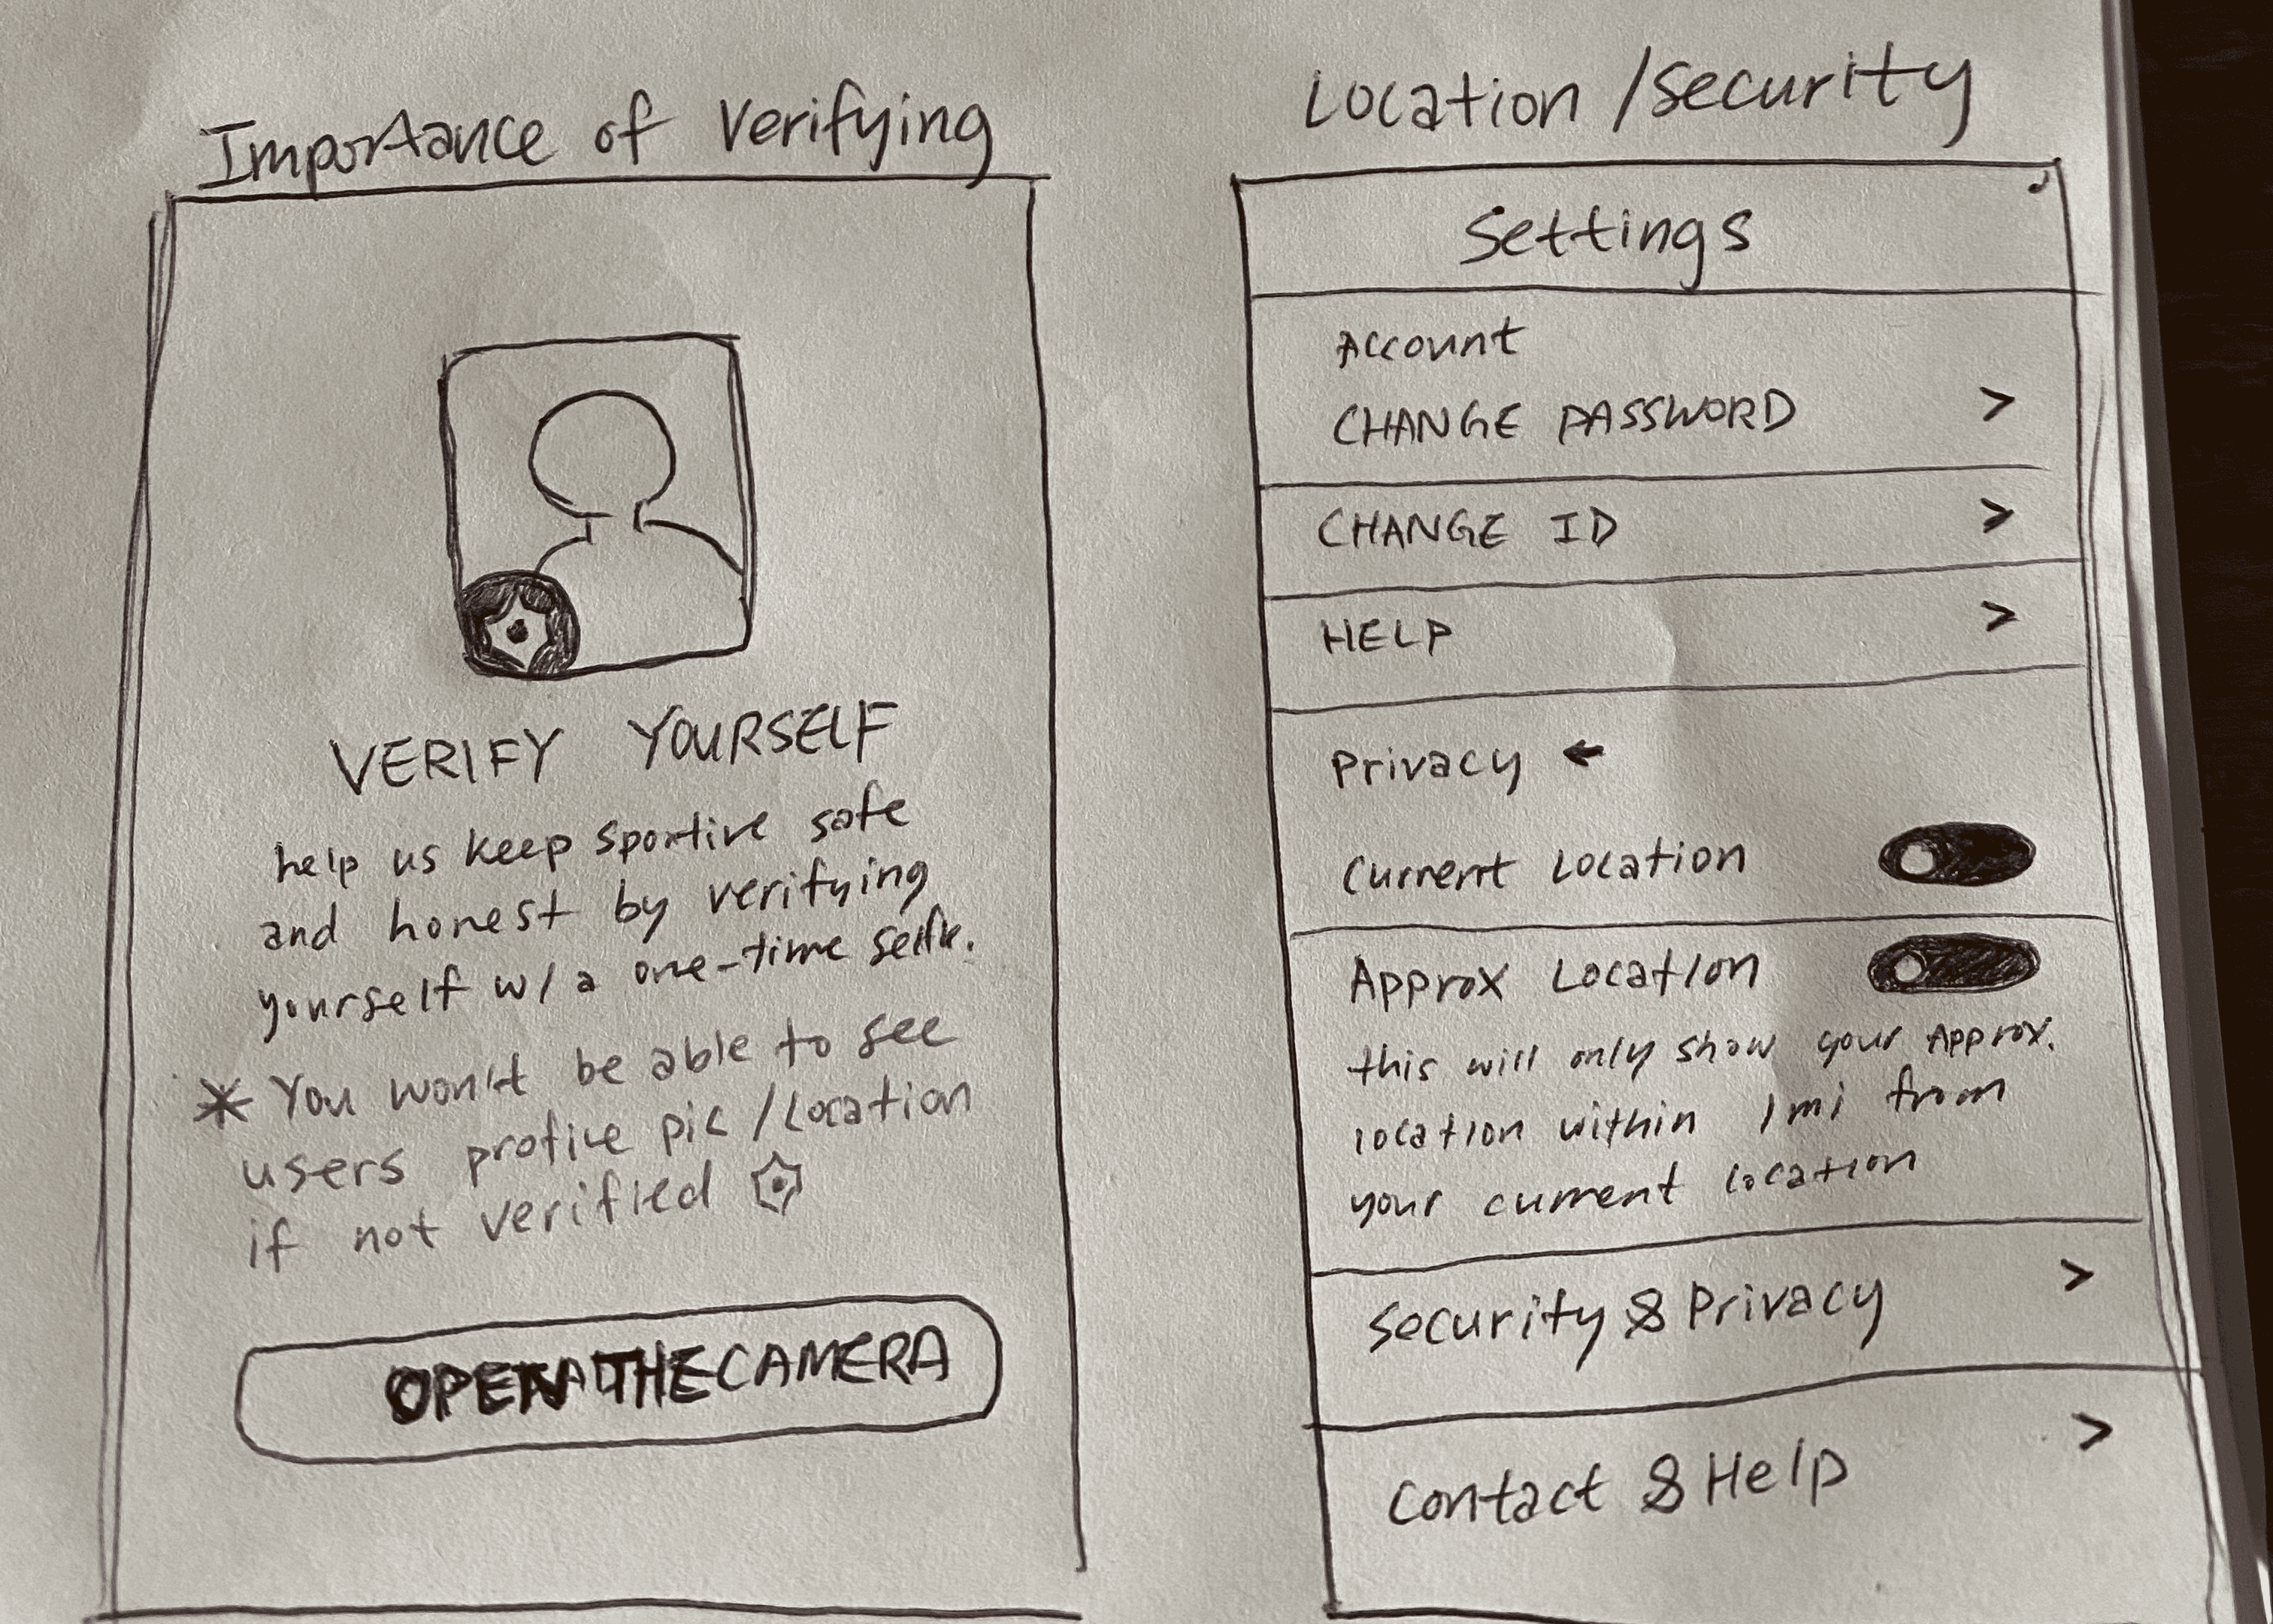 Importance of Verifying
VERIFY YOURSELF
help us keep sportive safe
and honest by verifying
yourself w/ a one-time selfie.
* You won't be able to see
users profile pic / Location
if not verified
OPEN THE CAMERA
Location / Security
Settings
Account
CHANGE PASSWORD >
CHANGE ID >
HELP >
Privacy ←
Current Location
Approx Location
this will only show your Approx.
location within 1 mi from
your current location
Security & Privacy >
Contact & Help >